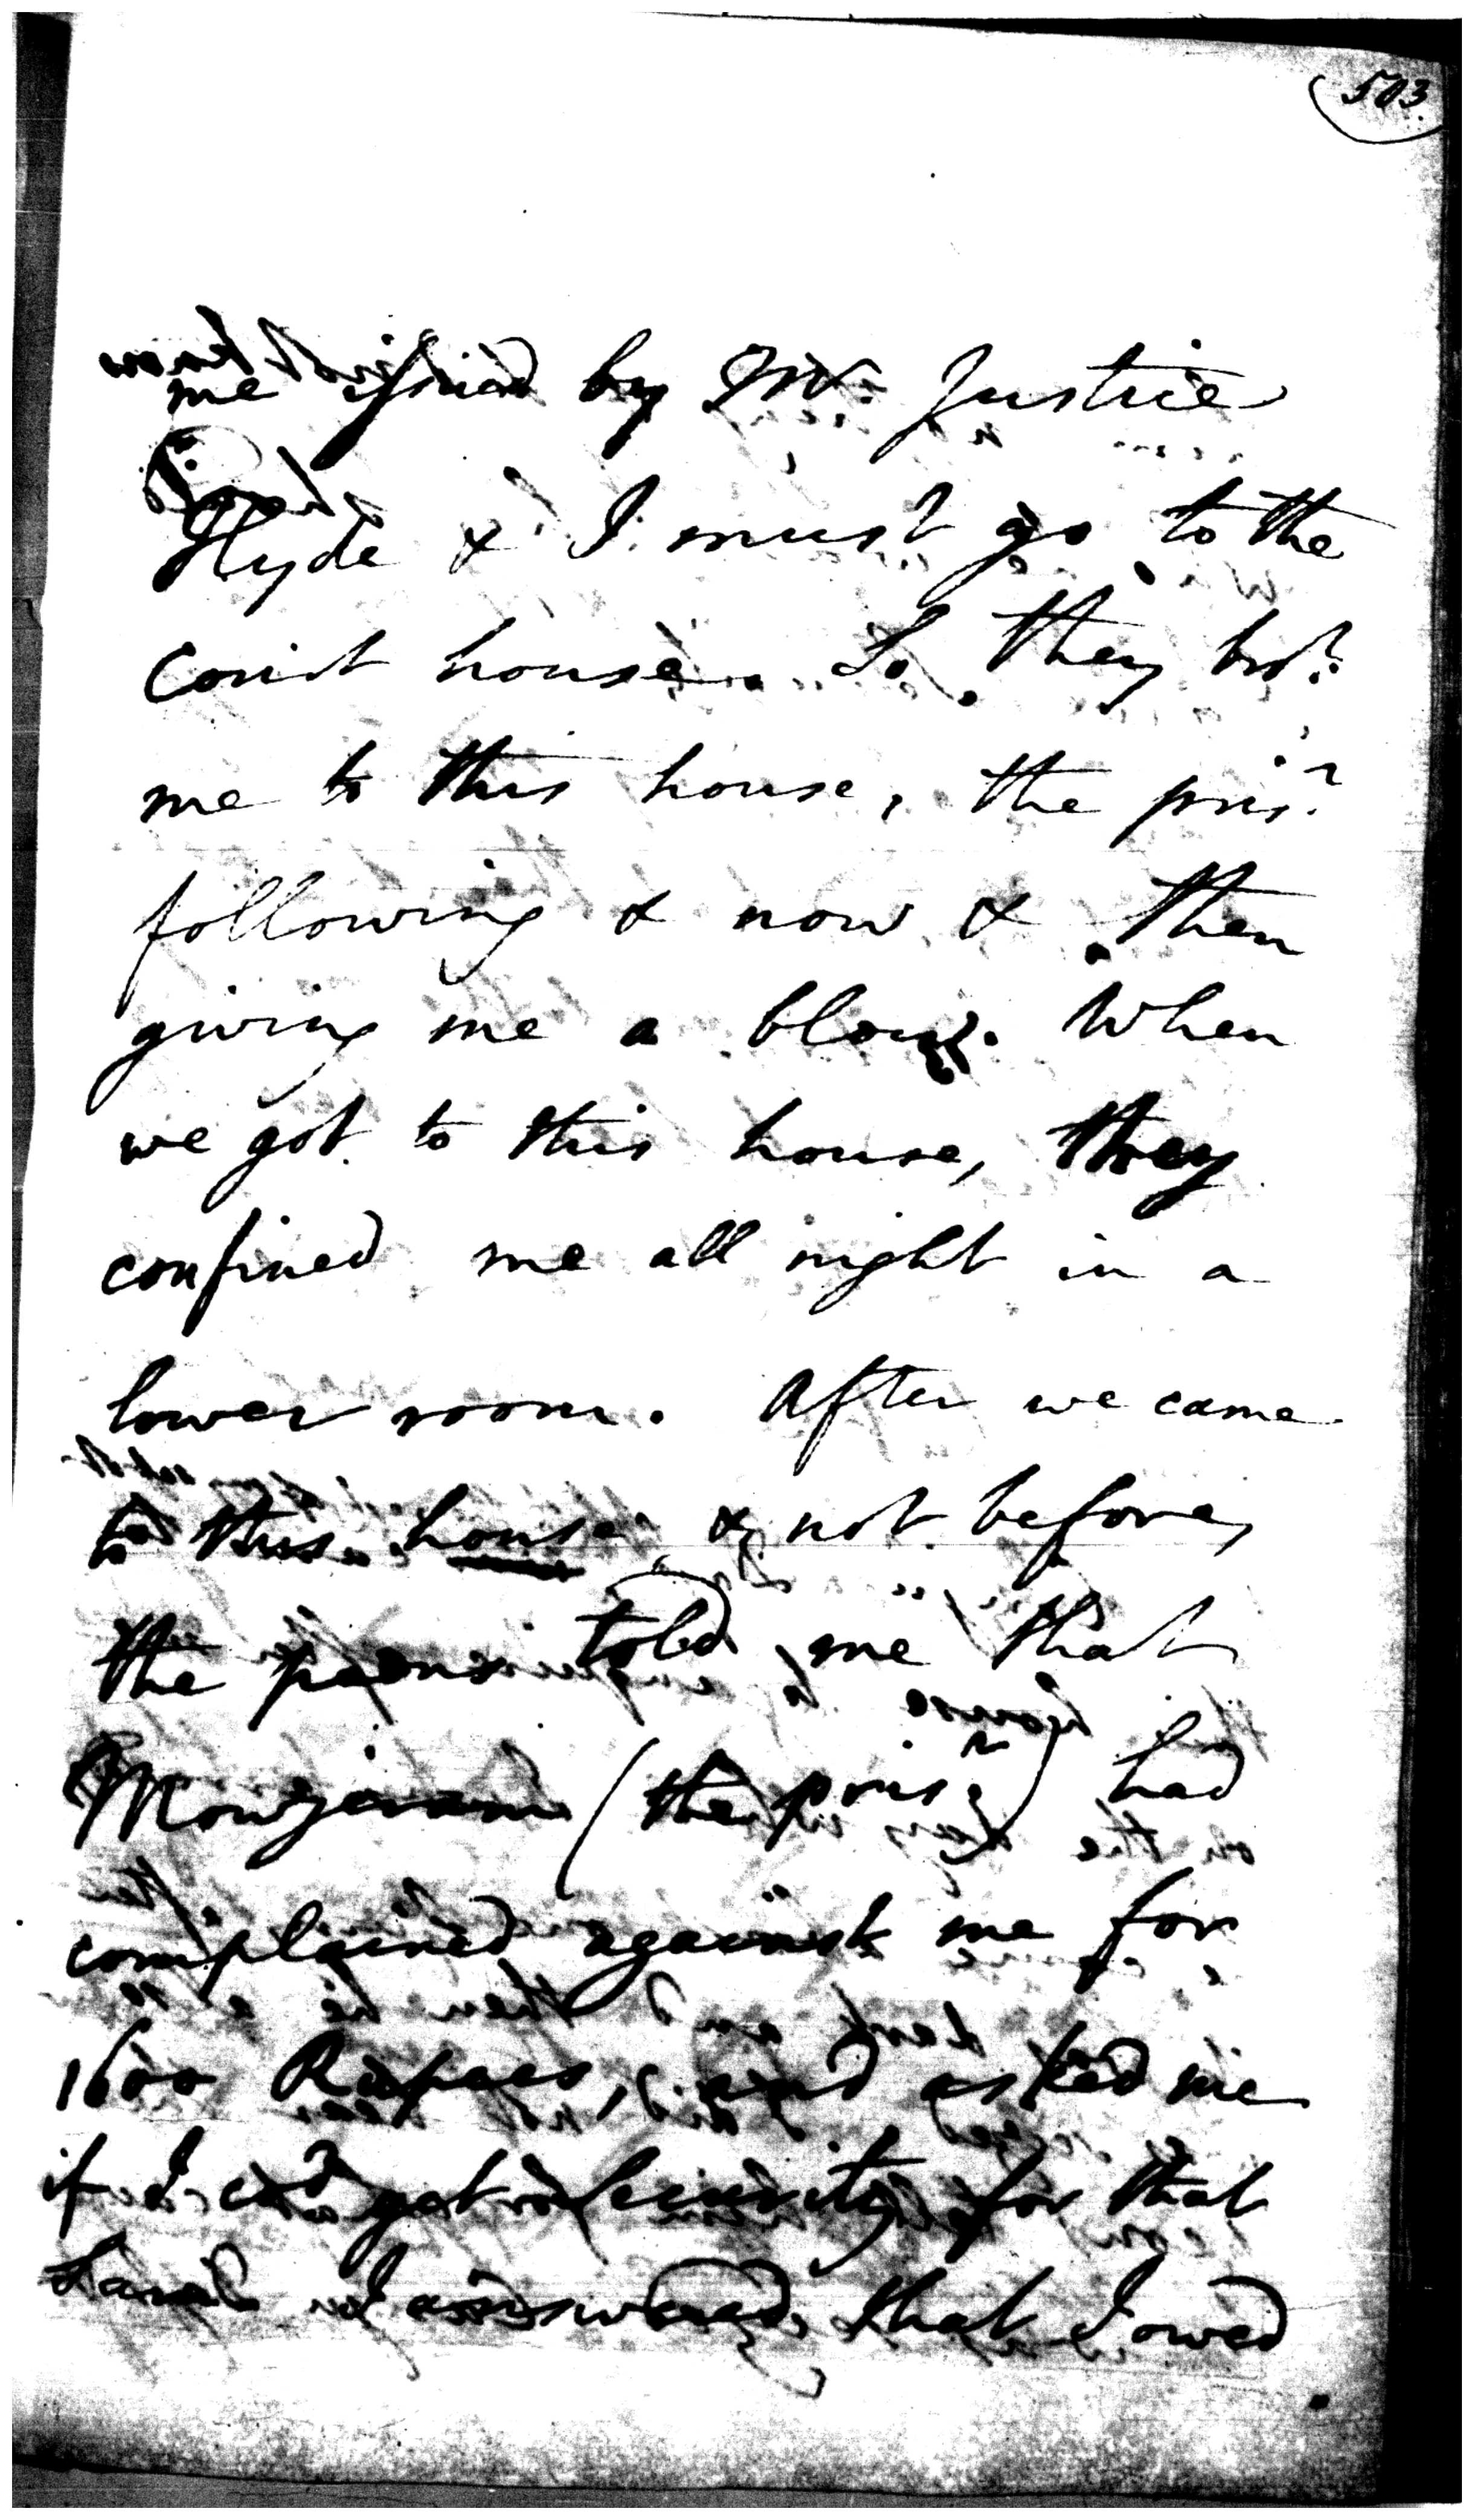 503
me by Mr. Justice
Hyde & I must go to the
Court house. So they brot.
me to this house, the prisr.
following & now & then
giving me a blow. When
we got to this house, they
confined me all night in a
lower room. After we came
to this house, & not before,
the peons told me that
(the prisr.) had
complained against me for
1600 Rupees, and asked me
if I cod get security for that
I answered, that I owed